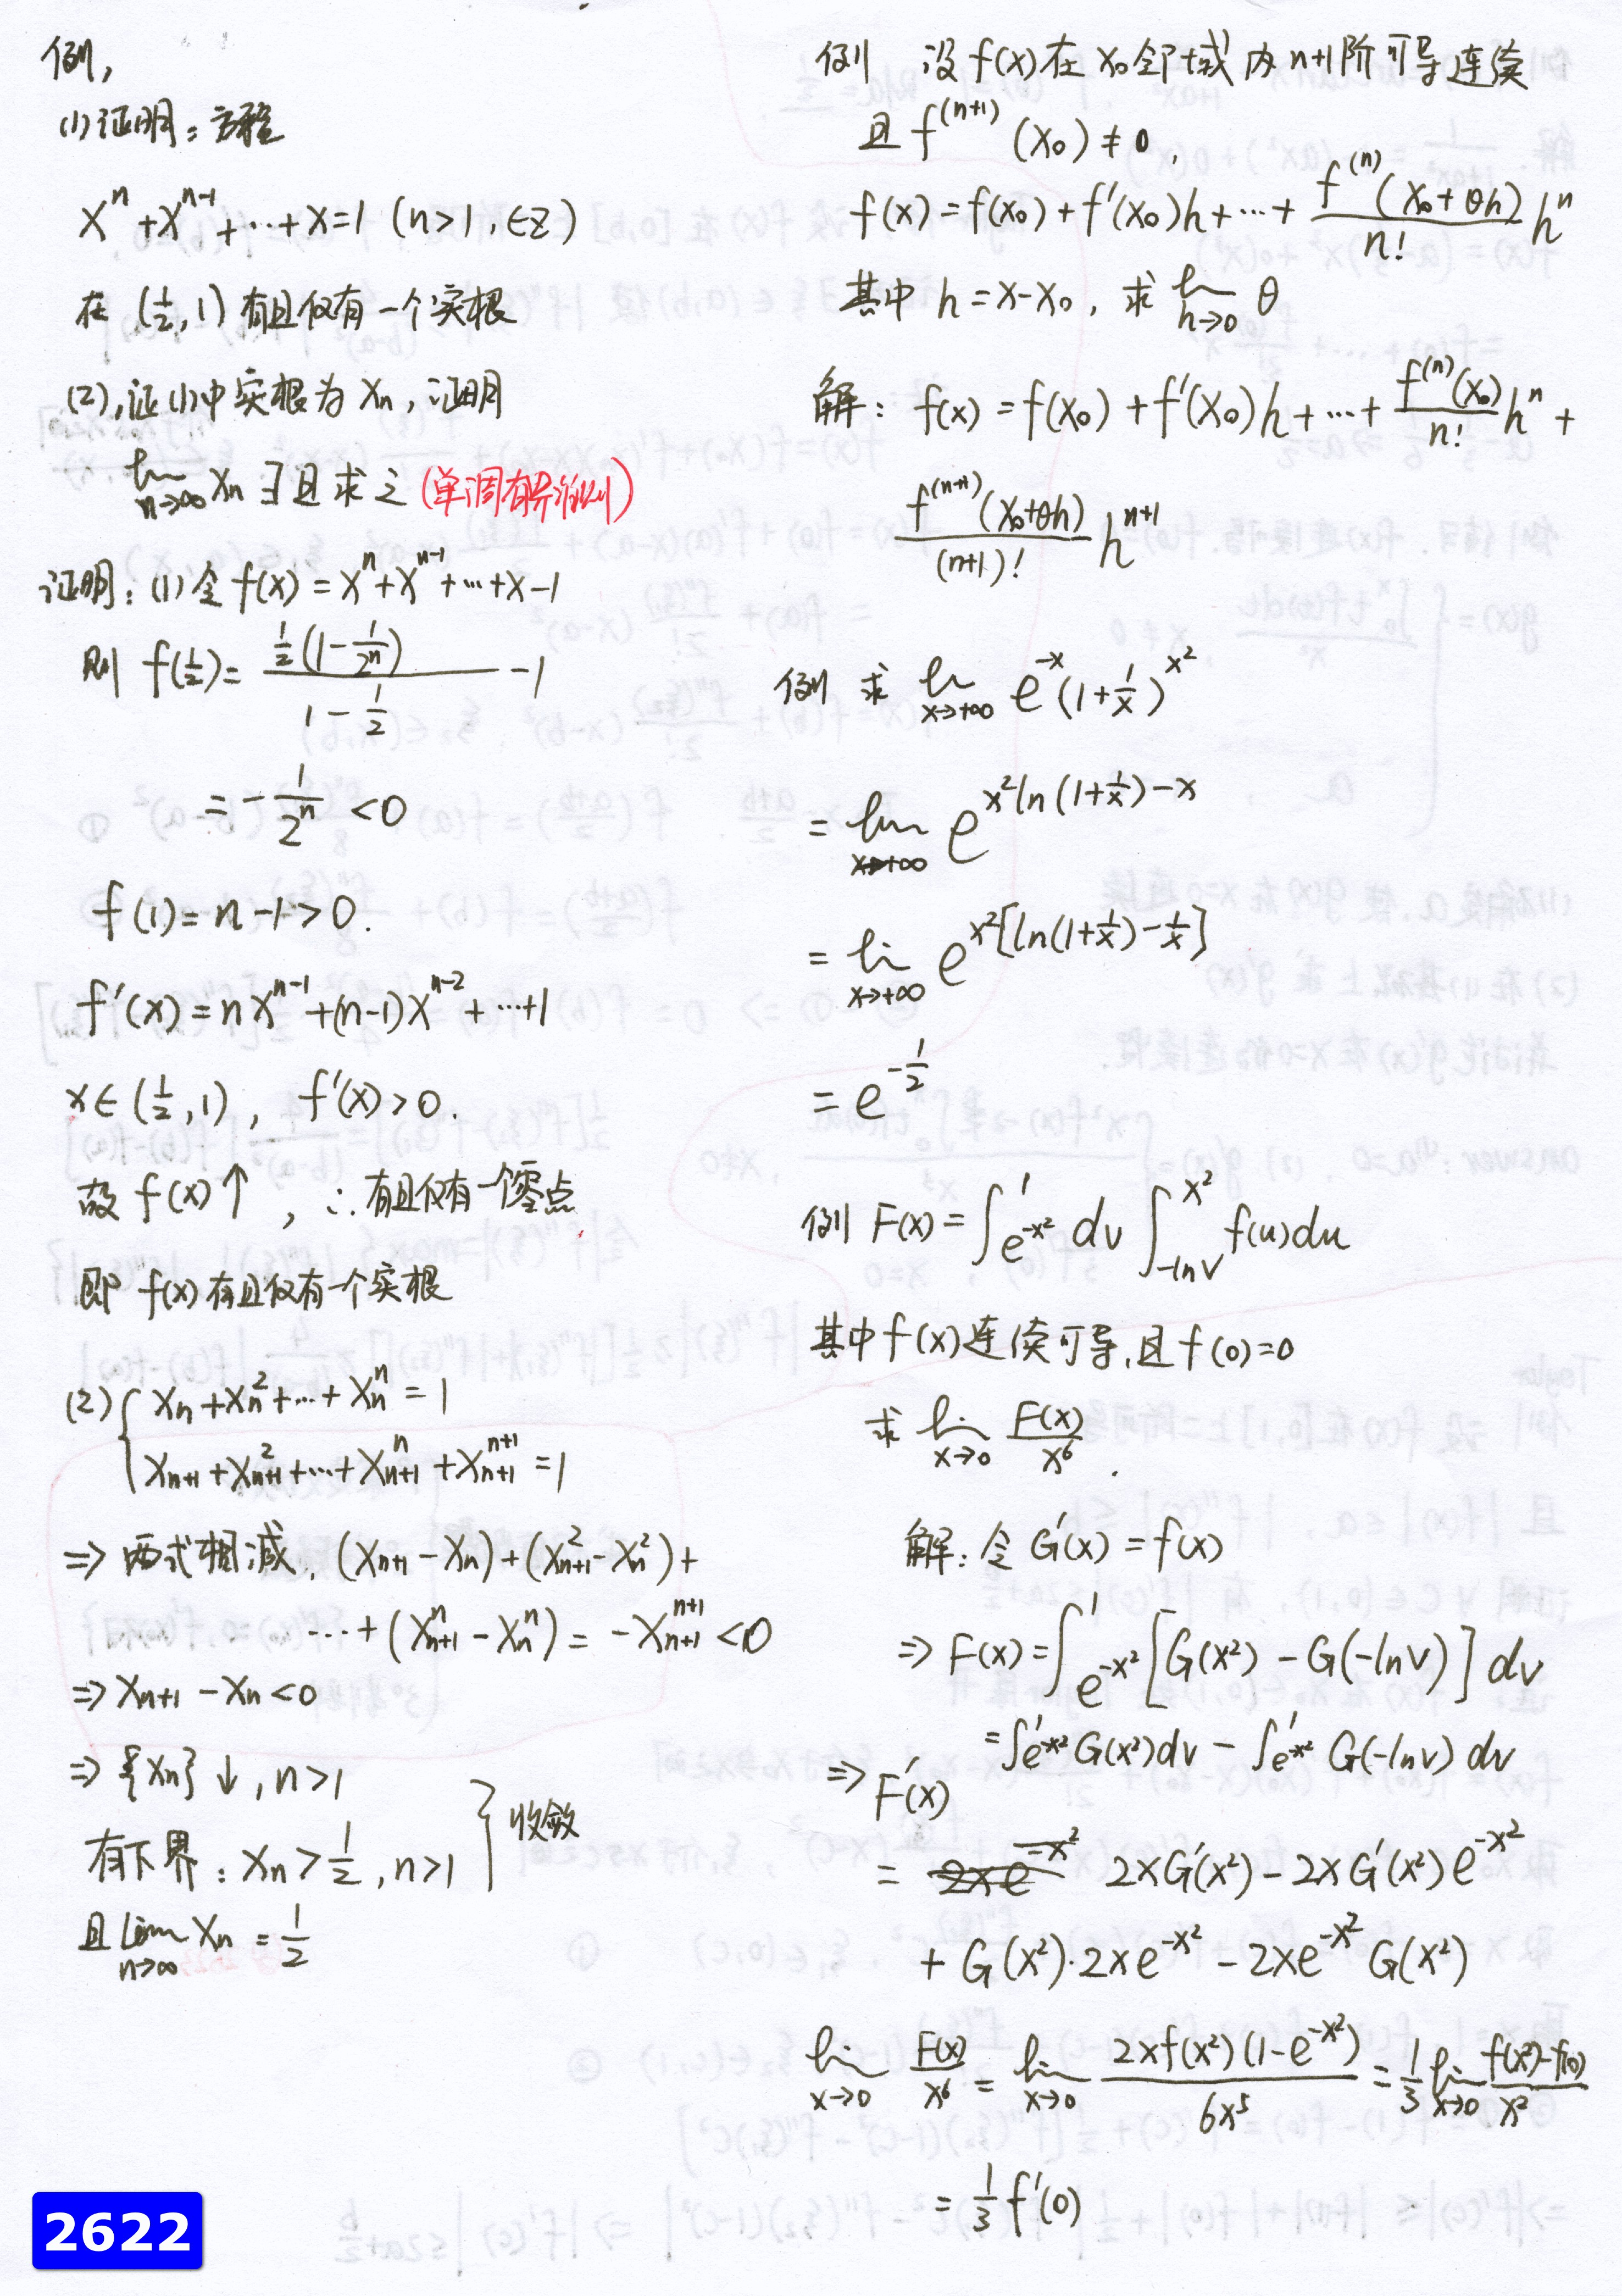 例,
(1) 证明：方程
xⁿ+xⁿ⁻¹+⋯+x=1 (n>1,∈Z)
在 (1/2, 1) 有且仅有一个实根
(2),证(1)中实根为 xₙ, 证明
lim_{n→∞} xₙ ∃且求之 (单调有界准则)
证明：(1) 令 f(x)=xⁿ+xⁿ⁻¹+⋯+x-1
则 f(1/2)= [1/2(1-1/2ⁿ)]/(1-1/2) -1
= -1/2ⁿ <0
f(1)=n-1>0.
f'(x)=nxⁿ⁻¹+(n-1)xⁿ⁻²+⋯+1
x∈(1/2,1), f'(x)>0.
故 f(x)↑, ∴有且仅有一个零点
即 f(x)有且仅有一个实根
(2) { xₙ+xₙ²+⋯+xₙⁿ=1
x_{n+1}+x_{n+1}²+⋯+x_{n+1}ⁿ+x_{n+1}ⁿ⁺¹=1
⇒ 两式相减, (x_{n+1}-xₙ)+(x_{n+1}²-xₙ²)+
⋯+(x_{n+1}ⁿ-xₙⁿ)=-x_{n+1}ⁿ⁺¹<0
⇒ x_{n+1}-xₙ<0
⇒ {xₙ}↓, n>1
有下界：xₙ>1/2, n>1 } 收敛
且 lim_{n→∞} xₙ=1/2
例 设f(x)在x₀邻域内n+1阶可导连续
且 f⁽ⁿ⁺¹⁾(x₀)≠0,
f(x)=f(x₀)+f'(x₀)h+⋯+ f⁽ⁿ⁾(x₀+θh)/n! hⁿ
其中 h=x-x₀, 求 lim_{h→0} θ
解：f(x)=f(x₀)+f'(x₀)h+⋯+ f⁽ⁿ⁾(x₀)/n! hⁿ+
f⁽ⁿ⁺¹⁾(x₀+θh)/(n+1)! hⁿ⁺¹
例 求 lim_{x→+∞} e^{-x}(1+1/x)^{x²}
= lim_{x→+∞} e^{x²ln(1+1/x)-x}
= lim_{x→+∞} e^{x²[ln(1+1/x)-1/x]}
= e^{-1/2}
例 F(x)=∫_{e^{-x²}}^{1} dv ∫_{-lnv}^{x²} f(u)du
其中f(x)连续可导,且f(0)=0
求 lim_{x→0} F(x)/x⁶.
解：令 G'(x)=f(x)
⇒ F(x)=∫_{e^{-x²}}^{1} [G(x²)-G(-lnv)] dv
=∫_{e^{-x²}}^{1} G(x²)dv - ∫_{e^{-x²}}^{1} G(-lnv) dv
⇒ F'(x)
= 2xG'(x²)-2xG'(x²)e^{-x²}
+G(x²)·2xe^{-x²}-2xe^{-x²}G(x²)
lim_{x→0} F(x)/x⁶ = lim_{x→0} 2xf(x²)(1-e^{-x²})/6x⁵ = 1/3 lim_{x→0} (f(x²)-f(0))/x²
= 1/3 f'(0)
2622